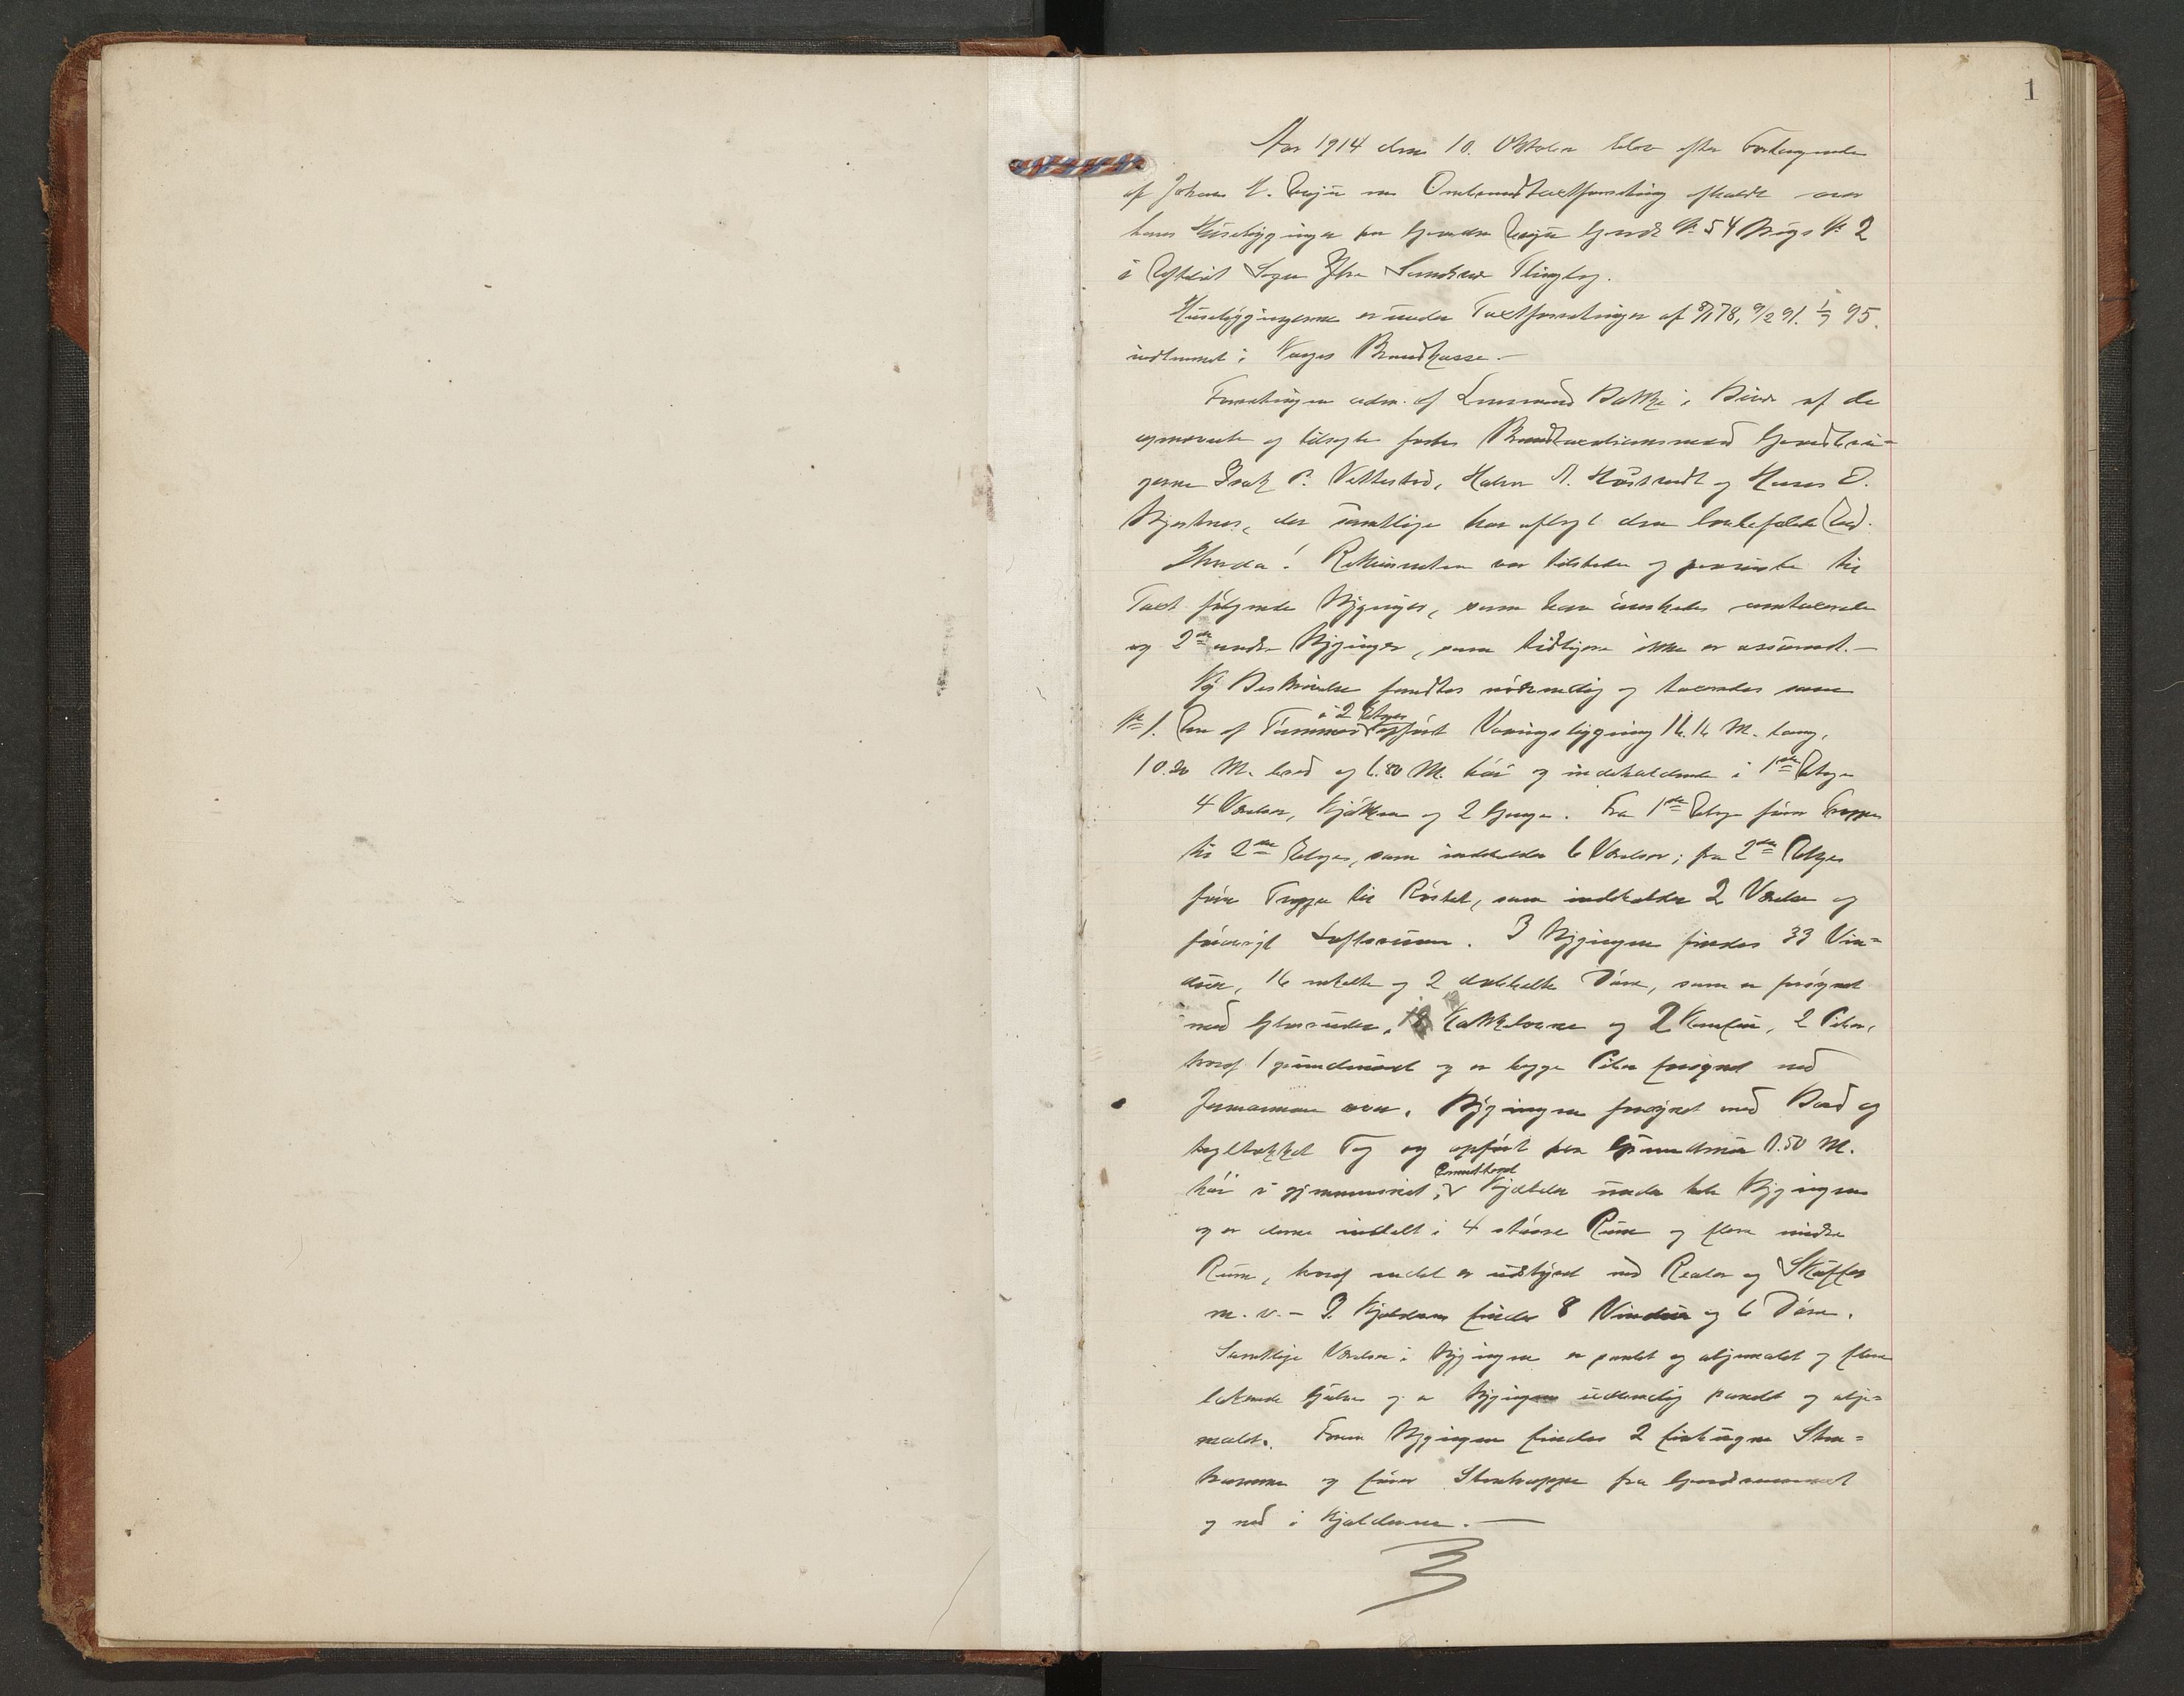 1
Aar 1914 den 10. Oktober blev efter Forlangende
af Johan E. Unjem en Ombrandtaxtforretning afholdt over
hans Husebygninger paa Gaarden Unjem Gards No 54 Brugs No 2
i Sogn Ytre Thinglag.
Husebygningerne er under Taxtforretninger af 9/2 91. 95.
indlemmet i Norges Brandkasse. —
Forretningen adm. af Lensmand Bakke i Bivær af de
opnævnte og tilsagte faste Brandtaxtionsmænd Gaardbru-
gerne Isak P. Vettestad, A. og Hans O.
Bjerknes, der samtlige har aflagt den befalede Ed.
Hvorda! Rekvirenten var tilstede og paaviste til
Taxt følgende Bygninger, som han ønskede omtaxerede
og 2de andre Bygninger, som tidligere ikke er assureret. —
Ny Beskrivelse fandtes nødvendig og taxeredes som
No 1. En af Tømmer i 2 Etager opført Vaaningsbygning 16.16 M. lang,
10.20 M. bred og 6.80 M. høi og indeholdende i 1ste Etage
4 Værelser, Kjøkken og 2 Gange. Fra 1ste Etage fører Trappe
til 2den Etage, som indeholder 6 Værelser; fra 2den Etage
fører Trappe til Røstet, som indeholder 2 Værelser og
forøvrigt Loftsrum. I Bygningen findes 33 Vin=
duer, 16 enkelte og 2 dobbelte Døre, som er forsynet
med Glasruder, Kakkelovne og 2 Komfur, 2 Piber,
hvoraf 1 grundmuret og er begge Piber forsynet med
Jernramme oven. Bygningen forsynet med Bord og
tegltækket Tag og opført paa Grundmur 1.50 M.
høi i gjennemsnit; Cementstøbt Kjælder under hele Bygningen
og er denne inddelt i 4 større Rum og flere mindre
Rum, hvoraf endel er udstyret med Reoler og Skuffer
m. v. – I Kjælderen findes 8 Vinduer og 6 Døre.
Samtlige Værelser i Bygningen er panelt og oljemalet og flere
lakerede Gulve og er Bygningen udvendig panelt og olje=
malet. Foran Bygningen findes 2 firkantede Sten=
og fører Stentrappe fra Gaardsrummet
og ned i Kjælderen. —